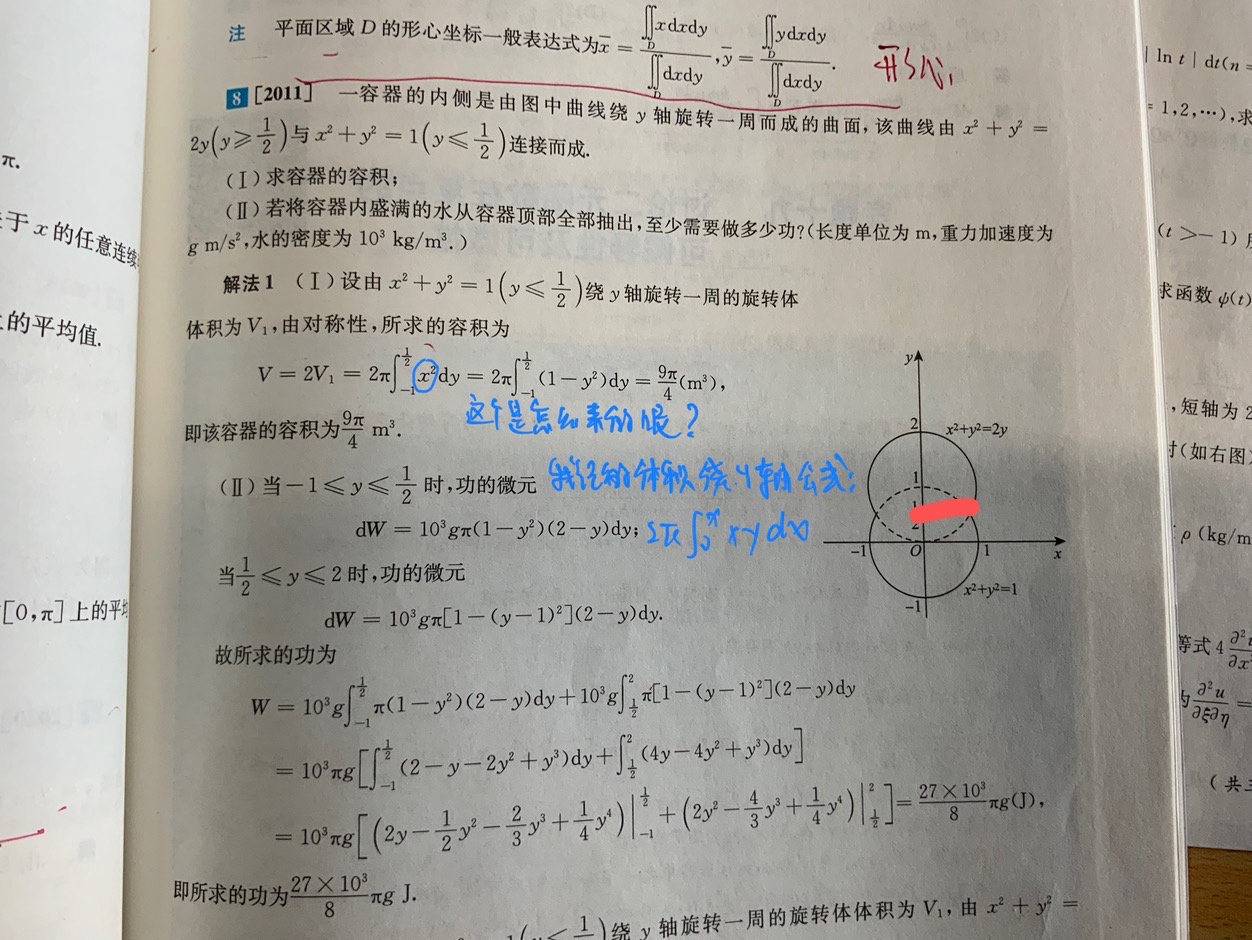 注 平面区域 D 的形心坐标一般表达式为 x̄ = ∬_D xdxdy / ∬_D dxdy , ȳ = ∬_D ydxdy / ∬_D dxdy . 形心
8 [2011] 一容器的内侧是由图中曲线绕 y 轴旋转一周而成的曲面,该曲线由 x² + y² =
2y(y ≥ 1/2)与 x² + y² = 1(y ≤ 1/2)连接而成.
(Ⅰ)求容器的容积;
(Ⅱ)若将容器内盛满的水从容器顶部全部抽出,至少需要做多少功?(长度单位为 m,重力加速度为
g m/s²,水的密度为 10³ kg/m³.)
解法1 (Ⅰ)设由 x² + y² = 1(y ≤ 1/2)绕 y 轴旋转一周的旋转体
体积为 V₁,由对称性,所求的容积为
V = 2V₁ = 2π∫_{-1}^{1/2} x²dy = 2π∫_{-1}^{1/2} (1 − y²)dy = 9π/4 (m³),
这个是怎么来的呢?
即该容器的容积为 9π/4 m³.
(Ⅱ)当 −1 ≤ y ≤ 1/2 时,功的微元
我记的体积绕 y 轴公式:
dW = 10³gπ(1 − y²)(2 − y)dy;
2π∫ xy dx
当 1/2 ≤ y ≤ 2 时,功的微元
dW = 10³gπ[1 − (y − 1)²](2 − y)dy.
故所求的功为
W = 10³g∫_{-1}^{1/2} π(1 − y²)(2 − y)dy + 10³g∫_{1/2}^{2} π[1 − (y − 1)²](2 − y)dy
= 10³πg[∫_{-1}^{1/2} (2 − y − 2y² + y³)dy + ∫_{1/2}^{2} (4y − 4y² + y³)dy]
= 10³πg[(2y − 1/2 y² − 2/3 y³ + 1/4 y⁴)|_{-1}^{1/2} + (2y² − 4/3 y³ + 1/4 y⁴)|_{1/2}^{2}] = 27×10³/8 πg(J),
即所求的功为 27×10³/8 πg J.
绕 y 轴旋转一周的旋转体体积为 V₁,由 x² + y² =
y
2
x²+y²=2y
1
−1
O
1
x
x²+y²=1
−1
π.
于 x 的任意连续
的平均值.
[0,π] 上的平均
| ln t | dt(n =
= 1,2,⋯),求
(t > − 1)
求函数 ψ(t)
,短轴为 2
(如右图)
ρ (kg/m
等式 4 ∂²u/∂x²
∂²u/∂ξ∂η =
(共三